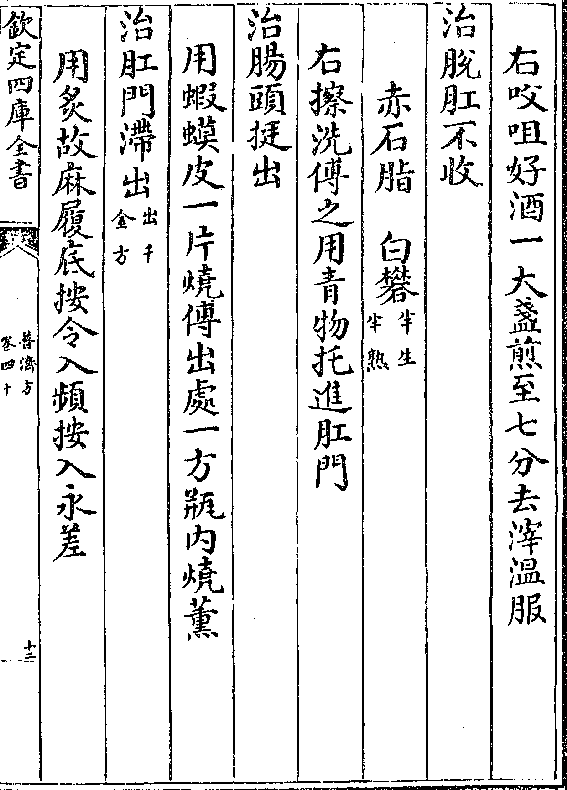 右㕮咀好酒一大盞煎至七分去滓溫服
治脫肛不收
赤石脂　白礬半生半熟
右擦洗傅之用青物托進肛門
治腸頭挺出
用蝦蟆皮一片燒傅出處一方瓶内燒薰
治肛門滯出出千金方
用炙故麻履底按令入頻按入永差
欽定四庫全書
普濟方
卷四十
十二